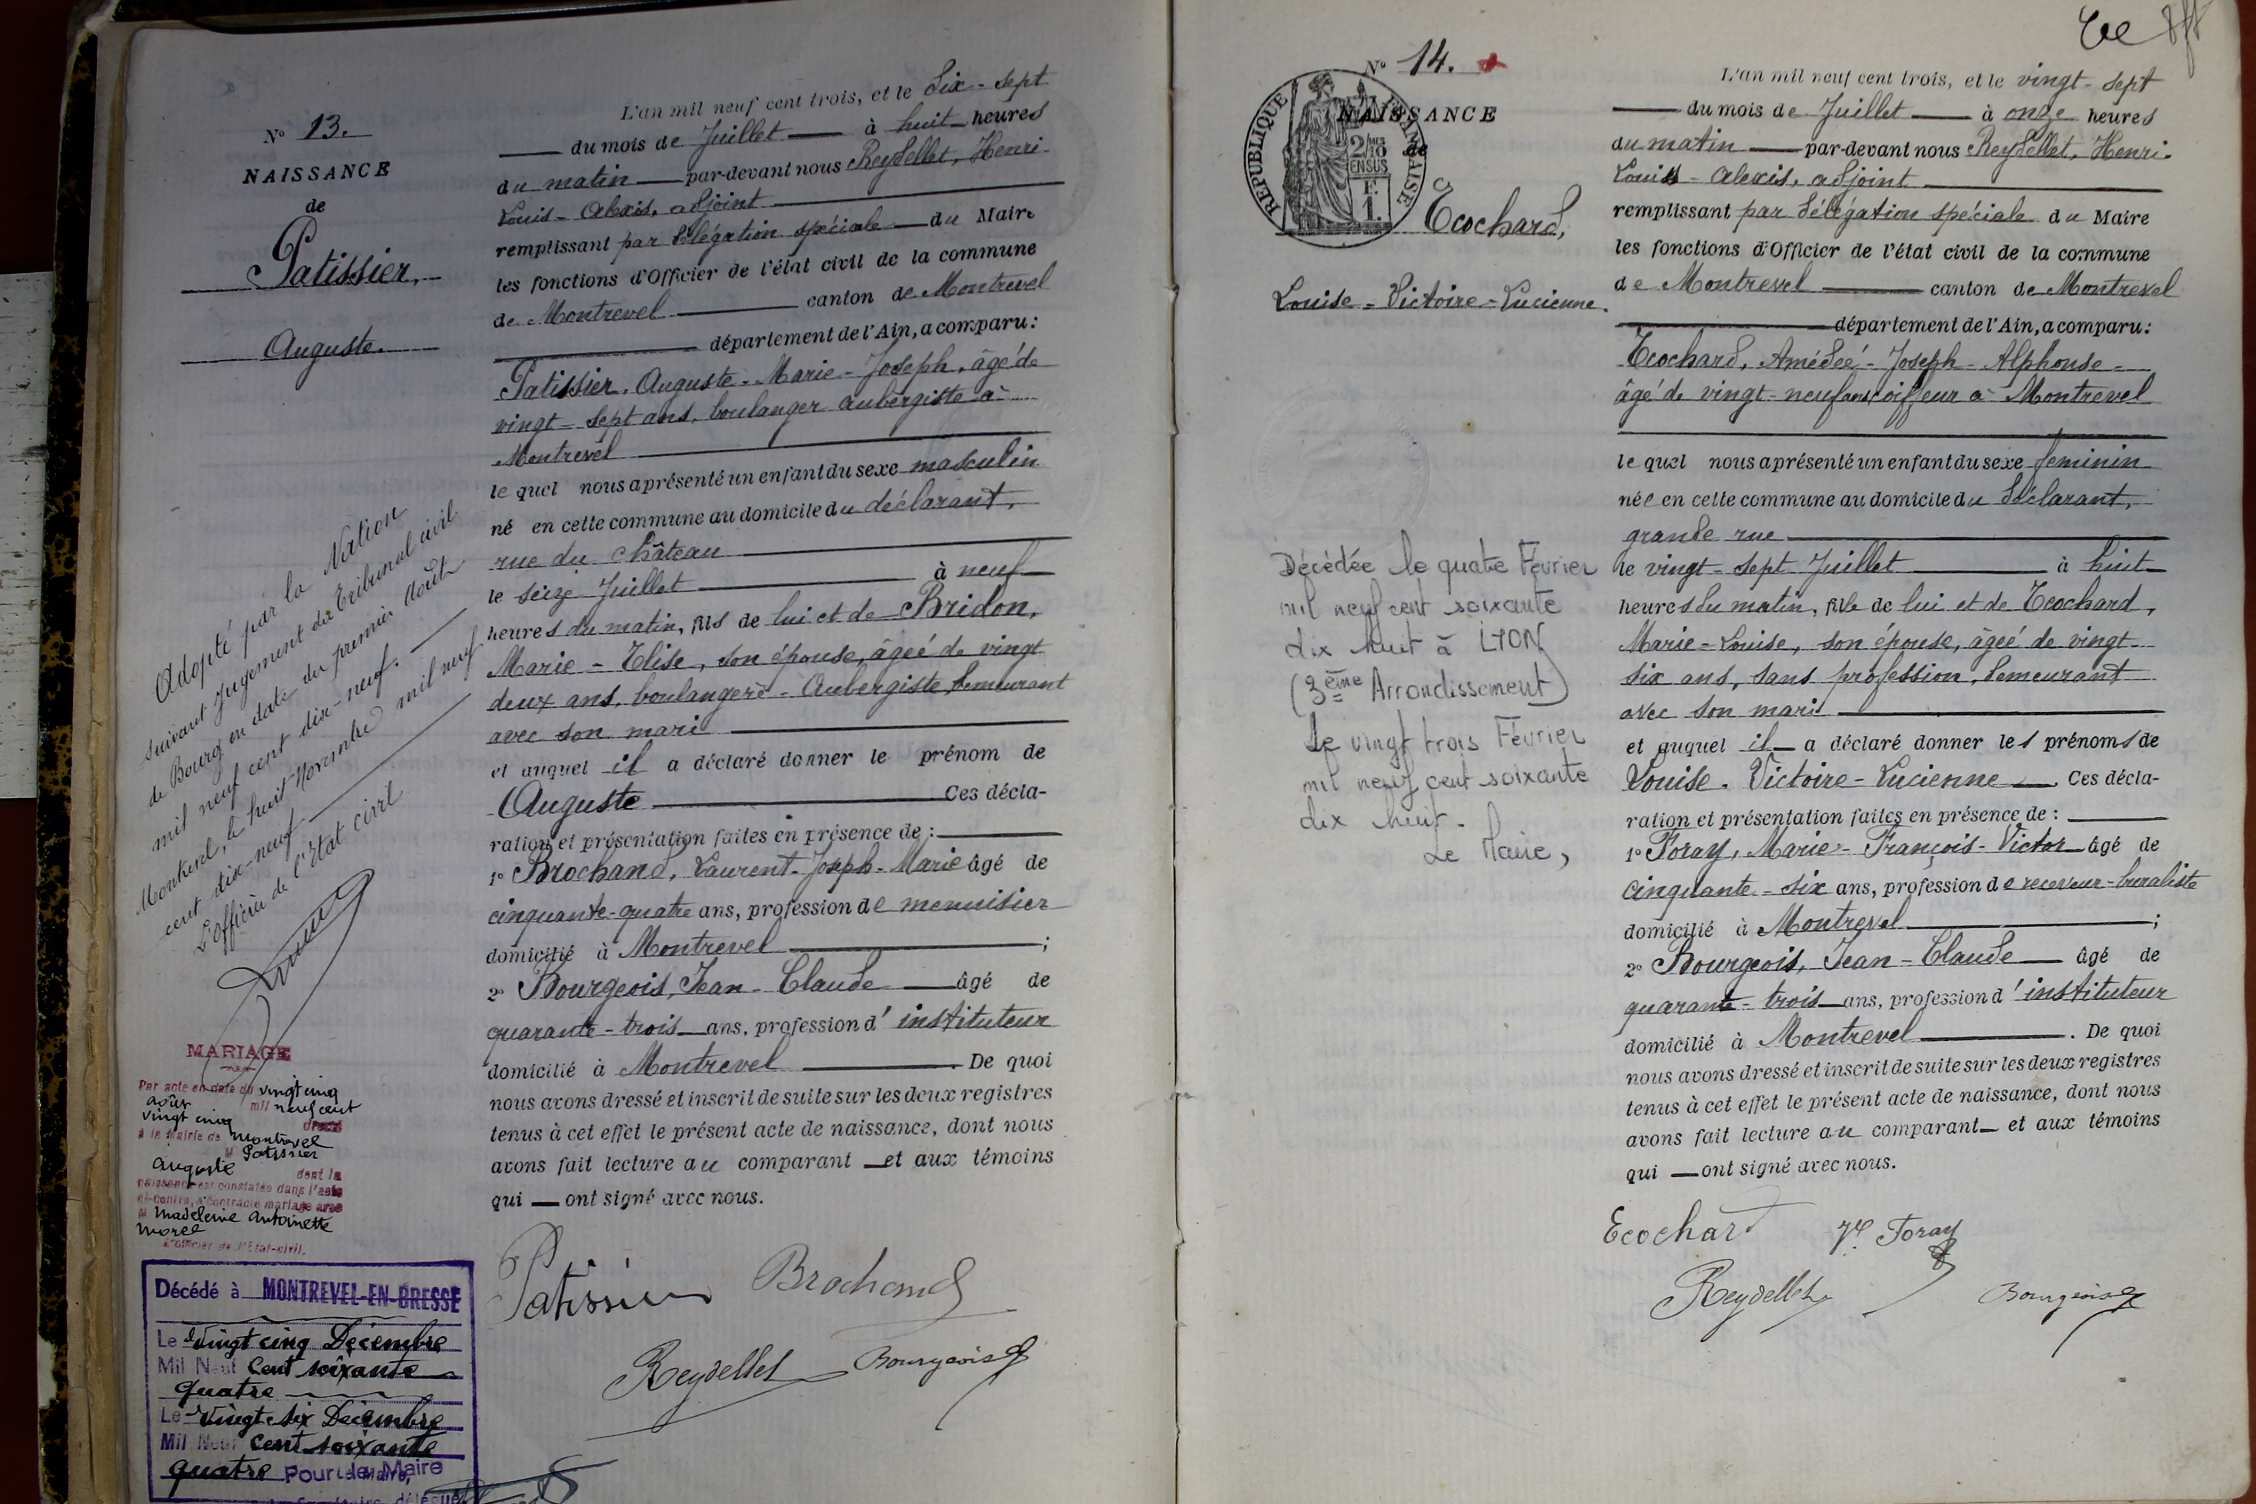 N° 13.
NAISSANCE
de
Patissier,
Auguste.
Adopté par la Nation
suivant Jugement du Tribunal civil
de Bourg en date du premier Août
mil neuf cent dix-neuf.
Montrevel, le huit Novembre mil neuf
cent dix-neuf
L'officier de l'Etat civil
MARIAGE
Par acte en date du vingt cinq
août mil neuf cent
vingt cinq dressé
à la Mairie de Montrevel
M Patissier
Auguste dont la
naissance est constatée dans l'acte
ci-contre, a contracté mariage avec
M Madeleine Antoinette
Morel
L'Officier de l'Etat-civil.
Décédé à MONTREVEL-EN-BRESSE
Le vingt cinq Décembre
Mil Neuf Cent soixante
quatre
Le vingt six Décembre
Mil Neuf cent soixante
quatre Pour le Maire
L'an mil neuf cent trois, et le dix-sept
du mois de Juillet à huit heures
du matin par-devant nous Reydellet, Henri-
Louis-Alexis, adjoint
remplissant par délégation spéciale du Maire
les fonctions d'Officier de l'état civil de la commune
de Montrevel canton de Montrevel
département de l'Ain, a comparu:
Patissier, Auguste-Marie-Joseph, âgé de
vingt-sept ans, boulanger aubergiste à
Montrevel
le quel nous a présenté un enfant du sexe masculin
né en cette commune au domicile du déclarant,
rue du château
le seize Juillet à neuf
heures du matin, fils de lui et de Bridon,
Marie-Elise, son épouse, âgée de vingt
deux ans, boulangère-Aubergiste, demeurant
avec son mari
et auquel il a déclaré donner le prénom de
Auguste Ces décla-
ration et présentation faites en présence de :
1° Brochand, Laurent-Joseph-Marie âgé de
cinquante-quatre ans, profession de menuisier
domicilié à Montrevel ;
2° Bourgeois, Jean-Claude âgé de
quarante-trois ans, profession d'instituteur
domicilié à Montrevel . De quoi
nous avons dressé et inscrit de suite sur les deux registres
tenus à cet effet le présent acte de naissance, dont nous
avons fait lecture au comparant et aux témoins
qui ont signé avec nous.
Patissier Brochand
Reydellet Bourgeois
N° 14.
REPUBLIQUE FRANÇAISE
2/10
EN SUS
F.
1.
NAISSANCE
de
Ecochard,
Louise-Victoire-Lucienne.
Décédée le quatre Février
mil neuf cent soixante
dix huit à LYON
(3ème Arrondissement)
Le vingt trois Février
mil neuf cent soixante
dix huit.
Le Maire,
L'an mil neuf cent trois, et le vingt-sept
du mois de Juillet à onze heures
du matin par-devant nous Reydellet, Henri-
Louis-Alexis, adjoint
remplissant par délégation spéciale du Maire
les fonctions d'Officier de l'état civil de la commune
de Montrevel canton de Montrevel
département de l'Ain, a comparu:
Ecochard, Amédée-Joseph-Alphonse-
âgé de vingt-neuf ans, coiffeur à Montrevel
le quel nous a présenté un enfant du sexe féminin
née en cette commune au domicile du déclarant,
grande rue
le vingt-sept Juillet à huit
heures du matin, fille de lui et de Ecochard,
Marie-Louise, son épouse, âgée de vingt-
six ans, sans profession, demeurant
avec son mari
et auquel il a déclaré donner les prénoms de
Louise-Victoire-Lucienne Ces décla-
ration et présentation faites en présence de :
1° Foray, Marie-François-Victor âgé de
cinquante-six ans, profession de receveur-buraliste
domicilié à Montrevel ;
2° Bourgeois, Jean-Claude âgé de
quarante-trois ans, profession d'instituteur
domicilié à Montrevel . De quoi
nous avons dressé et inscrit de suite sur les deux registres
tenus à cet effet le présent acte de naissance, dont nous
avons fait lecture au comparant et aux témoins
qui ont signé avec nous.
Ecochard Foray
Reydellet Bourgeois